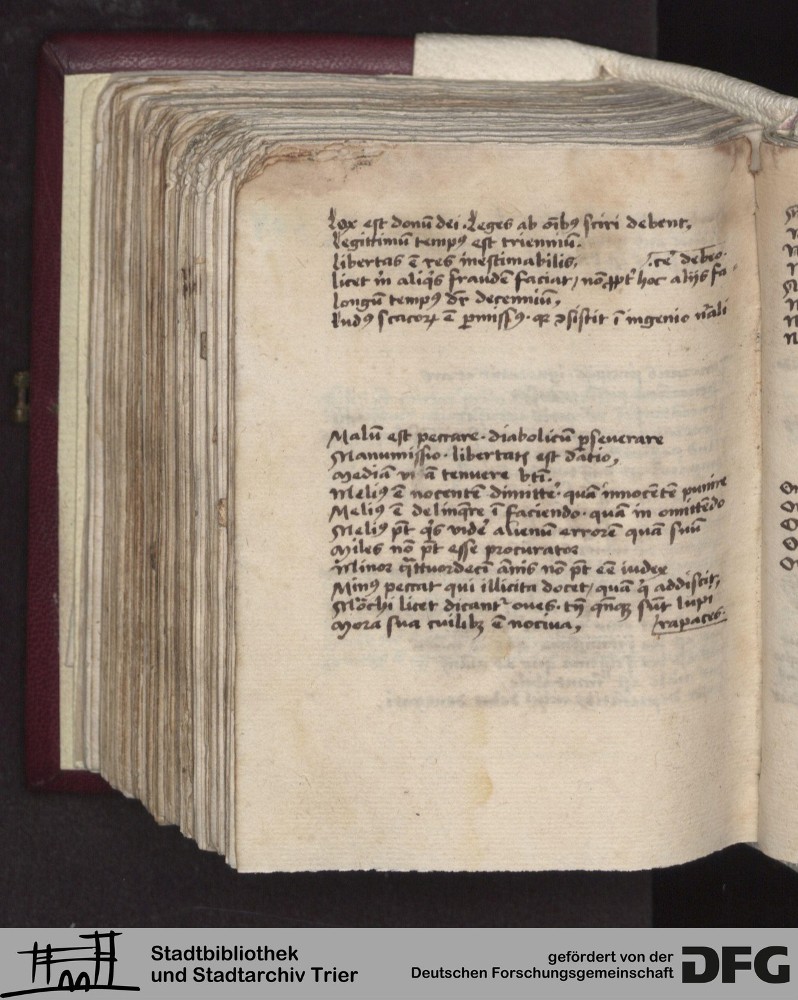 Lex est donū dei. Leges ab oībꝰ sciri debent.
Legittimū tempꝰ est trienniū.
Libertas ē res inestimabilis.
licet m̄ aliq̄s fraudē faciat, nō ꝓpt̄ hoc alijs fa
cē debeo.
Longū tempꝰ dr̄ decenniū,
Ludꝰ scacoꝝ ē ꝑmissꝰ. qꝛ ↄsistit ī ingenio nāli
Malū est peccare. diabolicū ꝑseverare
Manumissio. libertatꝭ est datio,
Mediā tenuere
Meliꝰ ē nocentē dimittē. quā innocētē punire
Meliꝰ ē delinq̄re ī faciendo. quā in omittēdo
Meliꝰ pt̄ q̄s videˀ alienū errorē quā suū
Miles nō pt̄ esse procurator
Minor q̄ttuordecī annis nō pt̄ eē iudex
Minꝰ peccat qui illicita docet, quā q̄ addiscit,
Mōchi licet dicantˀ oues. tn̄ q̄nqꝫ sūt lupi
rapaces.
Mora sua cuilibꝫ ē nociua,
Stadtbibliothek
und Stadtarchiv Trier
gefördert von der
Deutschen Forschungsgemeinschaft
DFG